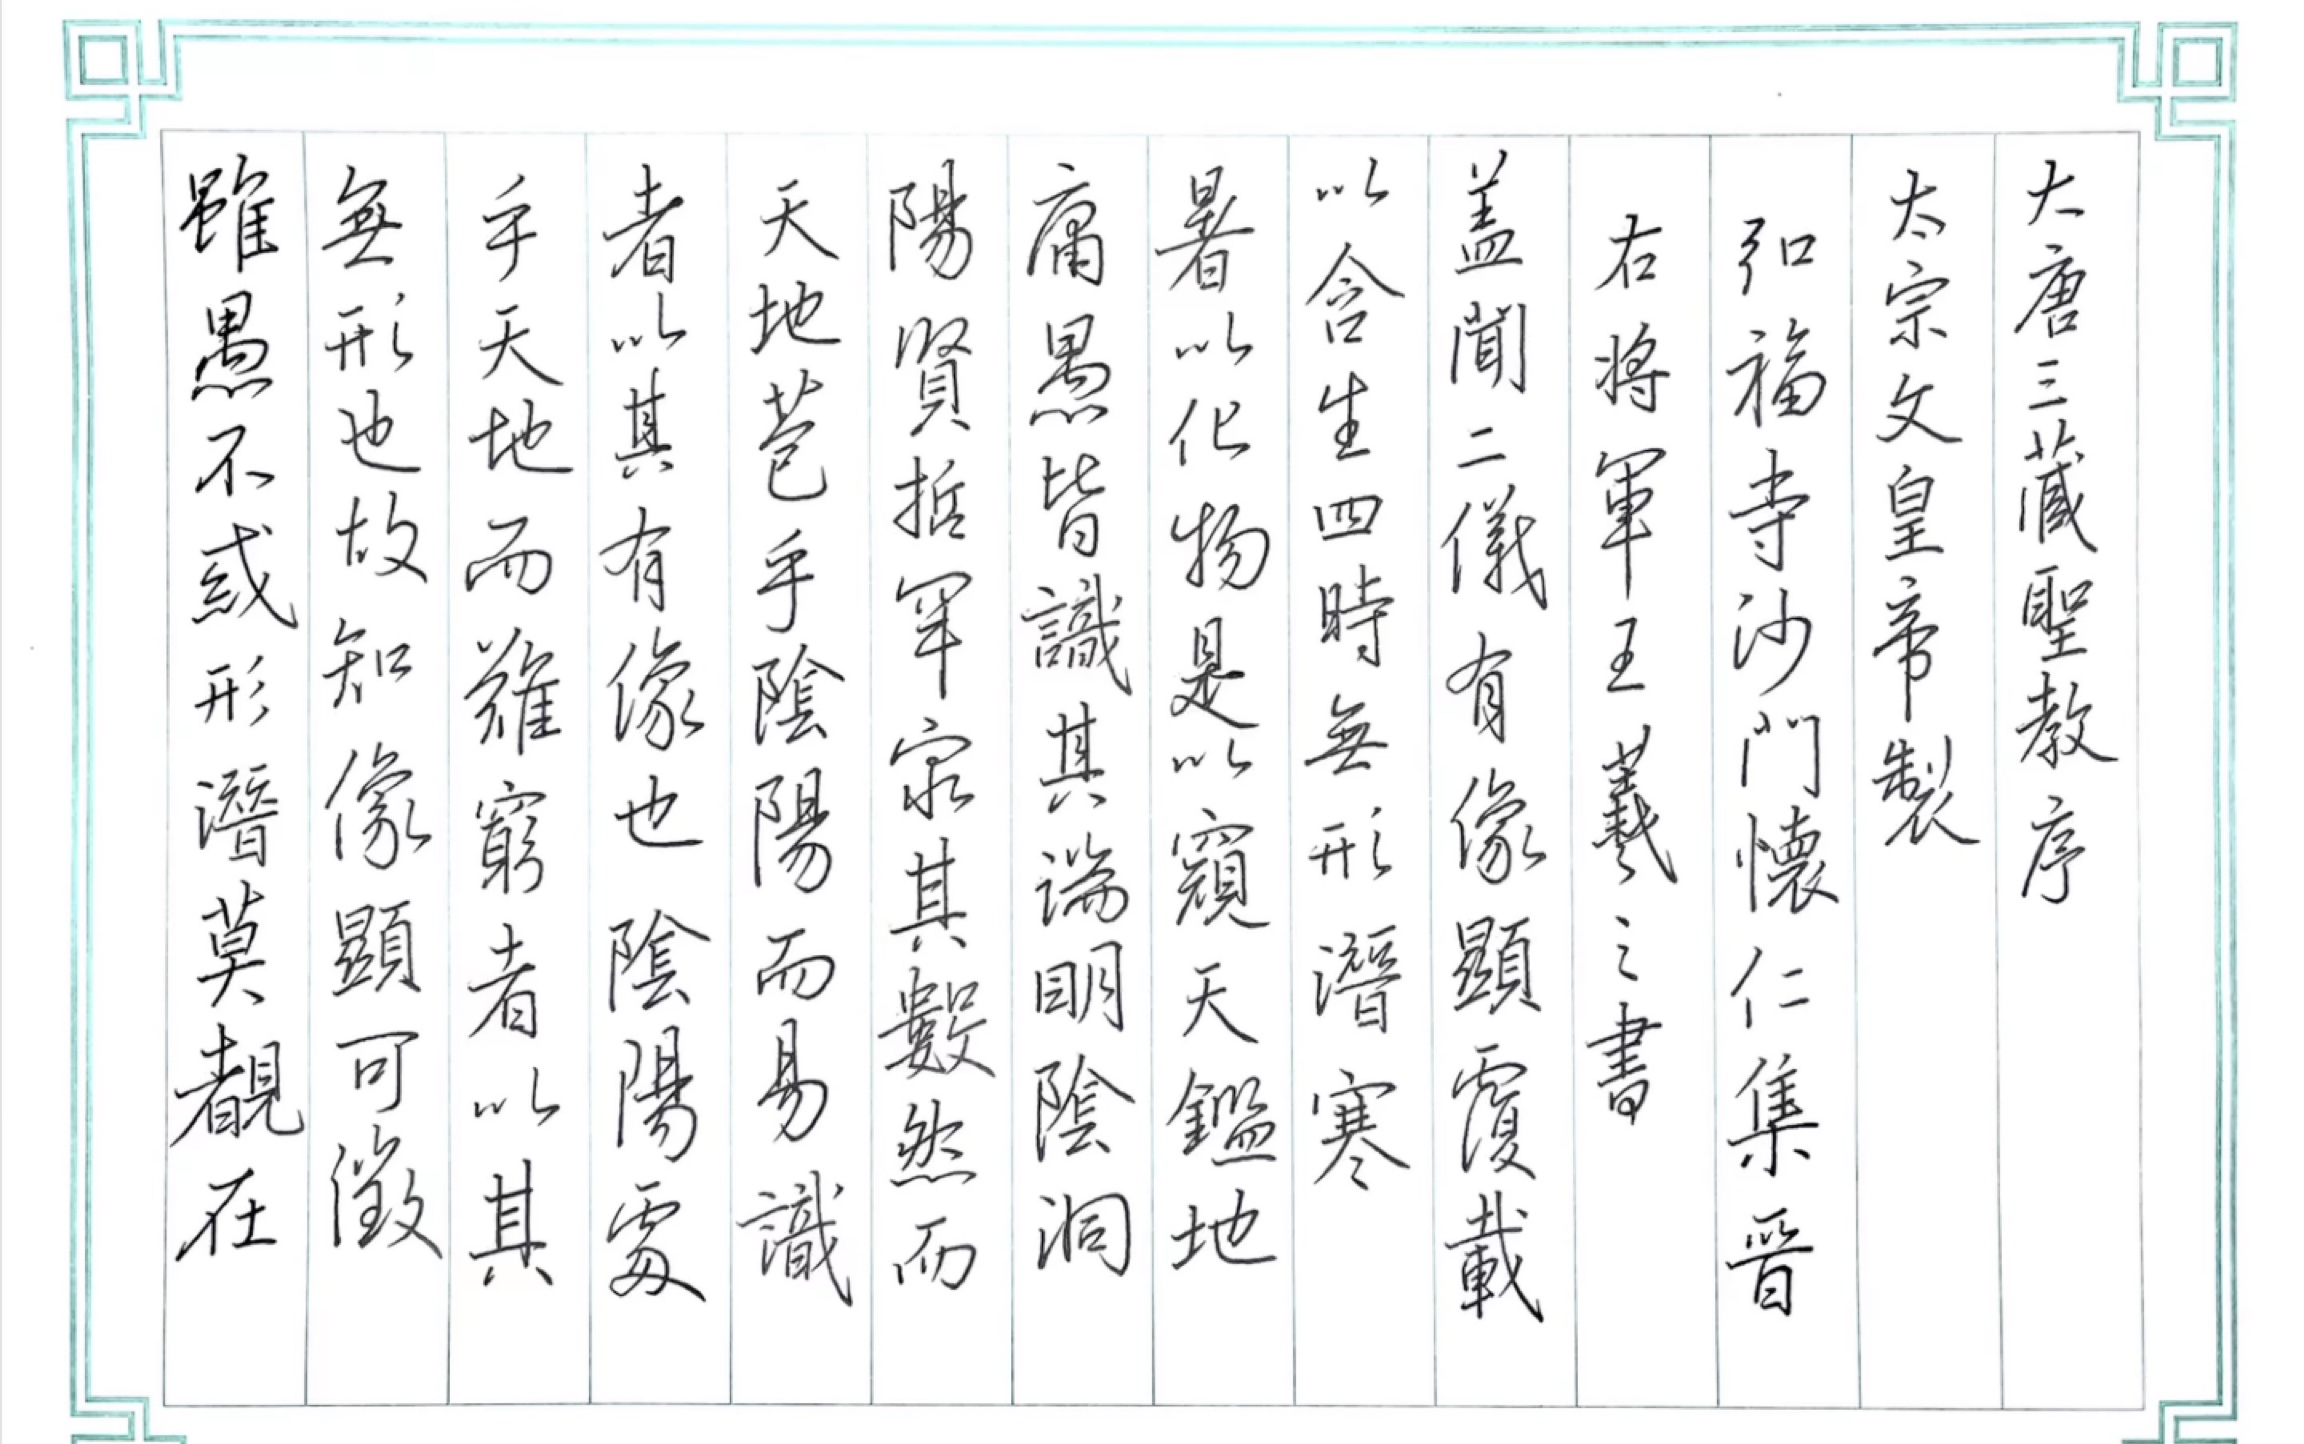 大唐三藏聖教序
太宗文皇帝製
弘福寺沙門懷仁集晉
右將軍王羲之書
盖聞二儀有像顯覆載
以含生四時無形潛寒
暑以化物是以窺天鑑地
庸愚皆識其端明陰洞
陽賢哲罕窮其數然而
天地苞乎陰陽而易識
者以其有像也陰陽處
乎天地而難窮者以其
無形也故知像顯可徵
雖愚不惑形潛莫覩在